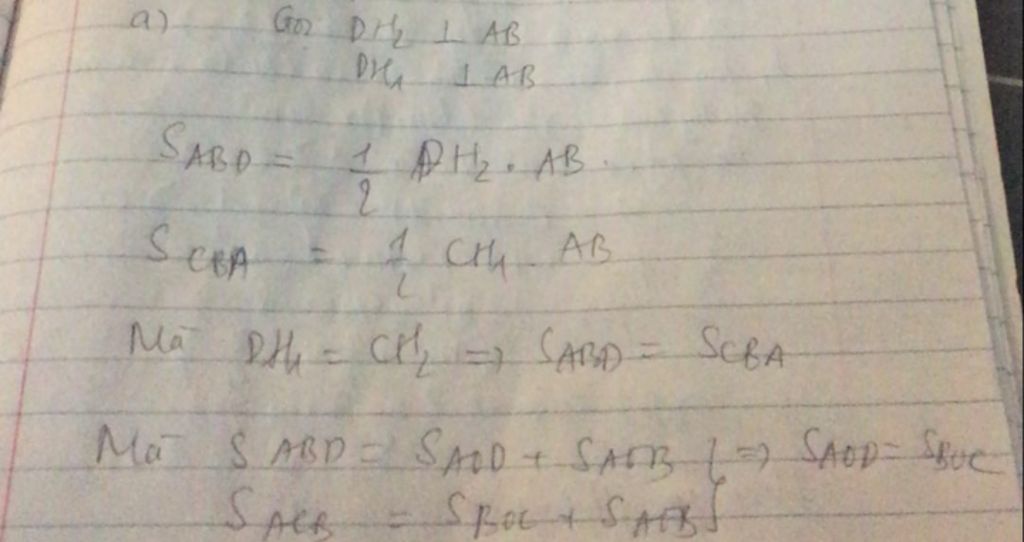 a) Gọi DH₂ ⊥ AB
DH₁ ⊥ AB
S_ABD = 1/2 DH₂ . AB.
S_CBA = 1/2 CH₁ . AB
Mà DH₁ = CH₂ => S_ABD = S_CBA
Mà S_ABD = S_AOD + S_AOB } => S_AOD = S_BOC
S_ACB = S_BOC + S_AOB }